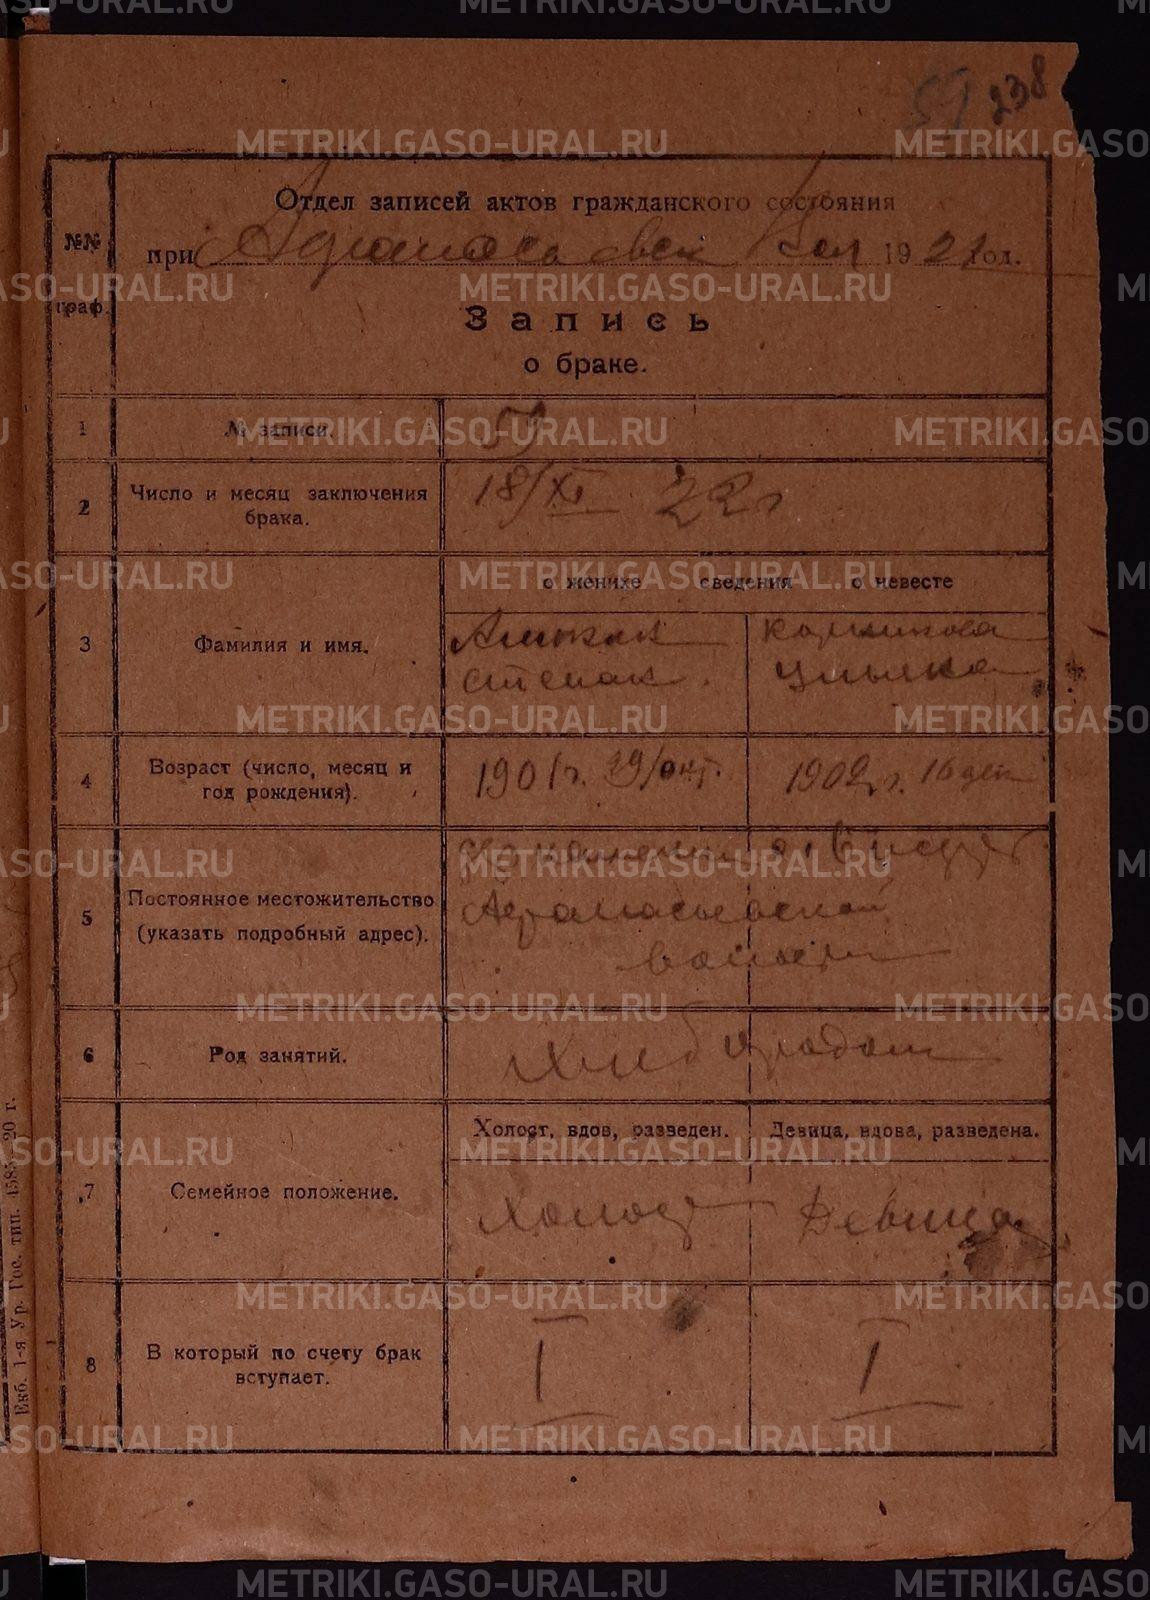 57 238
Отдел записей актов гражданского состояния
№№ граф.
при Афанасьевск Вол 1921 год.
Запись
о браке.
1 № записи. 59
2 Число и месяц заключения брака. 18/XI 22 г
о женихе сведения о невесте
3 Фамилия и имя.
Степан.
4 Возраст (число, месяц и год рождения). 1901 г. 29/окт. 1902 г. 16 дек
5 Постоянное местожительство (указать подробный адрес).
Афанасьевской
волости
6 Род занятий.
Холост, вдов, разведен. Девица, вдова, разведена.
7 Семейное положение. Холост Девица
8 В который по счету брак вступает. I I
Екб. 1-я Ур. Гос. тип. 4585 20 г.
METRIKI.GASO-URAL.RU